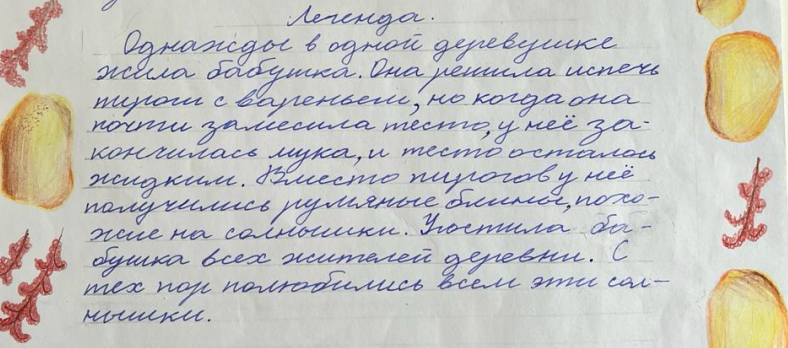 Легенда.
Однажды в одной деревушке
жила бабушка. Она решила испечь
пироги с вареньем, но когда она
почти замесила тесто, у неё за-
кончилась мука, и тесто осталось
жидким. Вместо пирогов у неё
получились румяные блины, похо-
жие на солнышки. Угостила ба-
бушка всех жителей деревни. С
тех пор полюбились всем эти сол-
нышки.